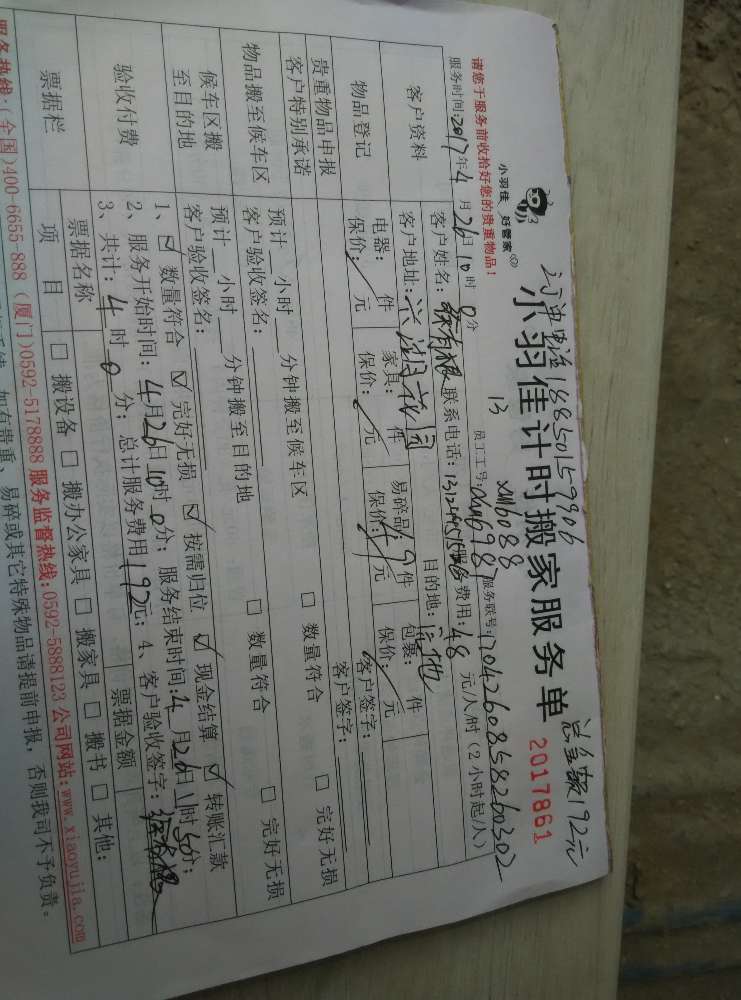 订单电话18850159906
总金额192元
小羽佳 好管家
小羽佳计时搬家服务单
2017861
请您于服务前收拾好您的贵重物品!
13
xm6088
服务时间:2017年4月26日10时0分
员工工号:
服务联号:
客户资料
客户姓名:
联系电话:
服务费用:48元/人/时(2小时起/人)
客户地址:
目的地:
物品登记
电器: 件
家具: 件
易碎品: 件
包裹: 件
保价: 元
保价: 元
保价: 元
保价: 元
客户签字:
贵重物品申报
客户特别承诺
客户签字:
物品搬至候车区
预计 小时 分钟搬至候车区
□ 数量符合
□ 完好无损
客户验收签名:
候车区搬
至目的地
预计 小时 分钟搬至目的地
□ 数量符合
□ 完好无损
客户验收签名:
验收付费
1、☑ 数量符合 ☑ 完好无损 ☑ 按需归位 ☑ 现金结算 ☑ 转账汇款
2、服务开始时间:4月26日10时0分;服务结束时间:4月26日11时50分;
3、共计:4时0分;总计服务费用192元;4、客户验收签字:
票据栏
票据名称
票据金额
项 目
□ 搬设备 □ 搬办公家具 □ 搬家具 □ 搬书 □ 其他:
服务热线:(全国)400-6655-888 (厦门)0592-5178888 服务监督热线:0592-5888123 公司网站:www.xiaoyujia.com
如有贵重、易碎或其它特殊物品请提前申报,否则我司不予负责。